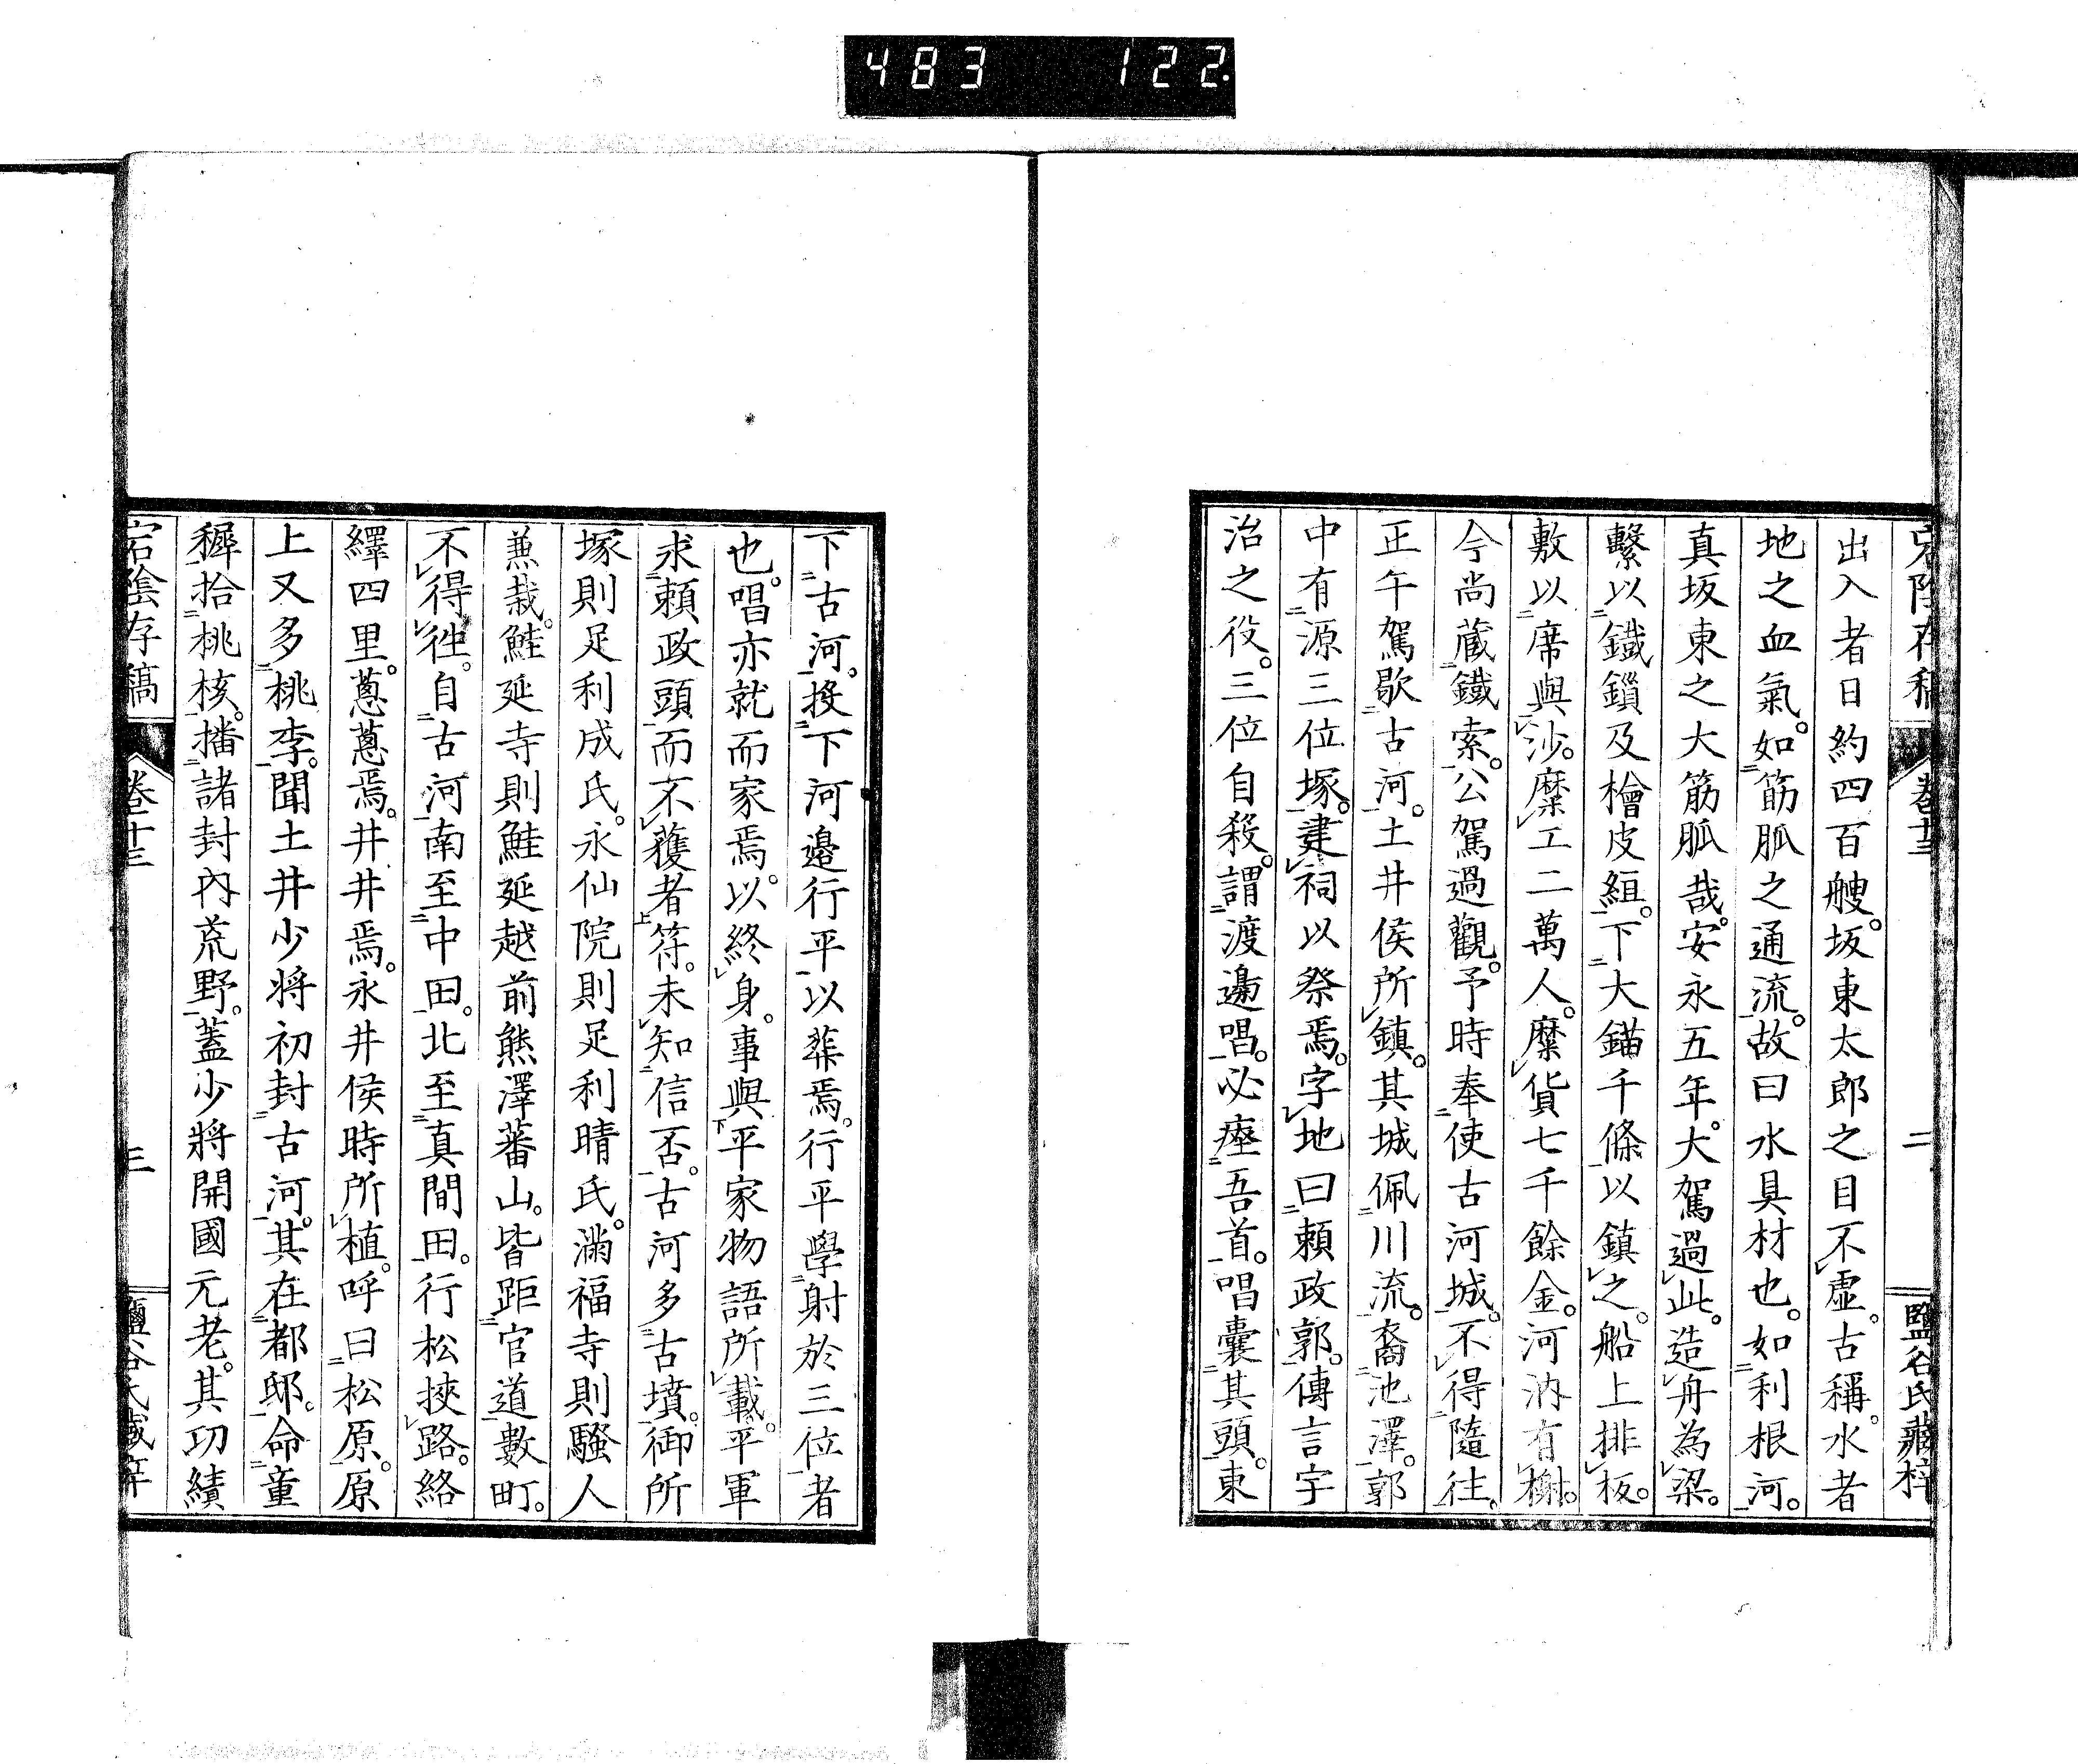 483 122
宕陰存稿 卷十三 二 鹽谷氏藏梓
出入者日約四百艘。坂東太郎之目不虛。古稱。水者
地之血氣。如筋脈之通流。故曰水具材也。如利根河。
真坂東之大筋脈哉。安永五年。大駕過此。造舟為梁。
繫以鐵鎖及檜皮絙。下大錨千條以鎮之。船上排板。
敷以席與沙。糜工二萬人。糜貨七千餘金。河汭有榭。
今尚藏鐵索。公駕過觀。予時奉使古河城。不得隨往。
正午駕歇古河。土井侯所鎮。其城佩川流。裔池澤。郭
中有源三位塚。建祠以祭焉。字地曰賴政郭。傳言宇
治之役。三位自殺。謂渡邊唱。必瘞吾首。唱囊其頭。東
下古河。投下河邊行平以葬焉。行平學射於三位者
也。唱亦就而家焉。以終身。事與平家物語所載。平軍
求賴政頭而不獲者符。未知信否。古河多古墳。御所
塚則足利成氏。永仙院則足利晴氏。滿福寺則騷人
兼栽。鮭延寺則鮭延越前熊澤蕃山。皆距官道數町。
不得往。自古河南至中田。北至真間田。行松挾路。絡
繹四里。蔥蔥焉。井井焉。永井侯時所植。呼曰松原。原
上又多桃李。聞土井少將初封古河。其在都邸。命童
穉拾桃核。播諸封內荒野。蓋少將開國元老。其功績
宕陰存稿 卷十三 三 鹽谷氏藏梓